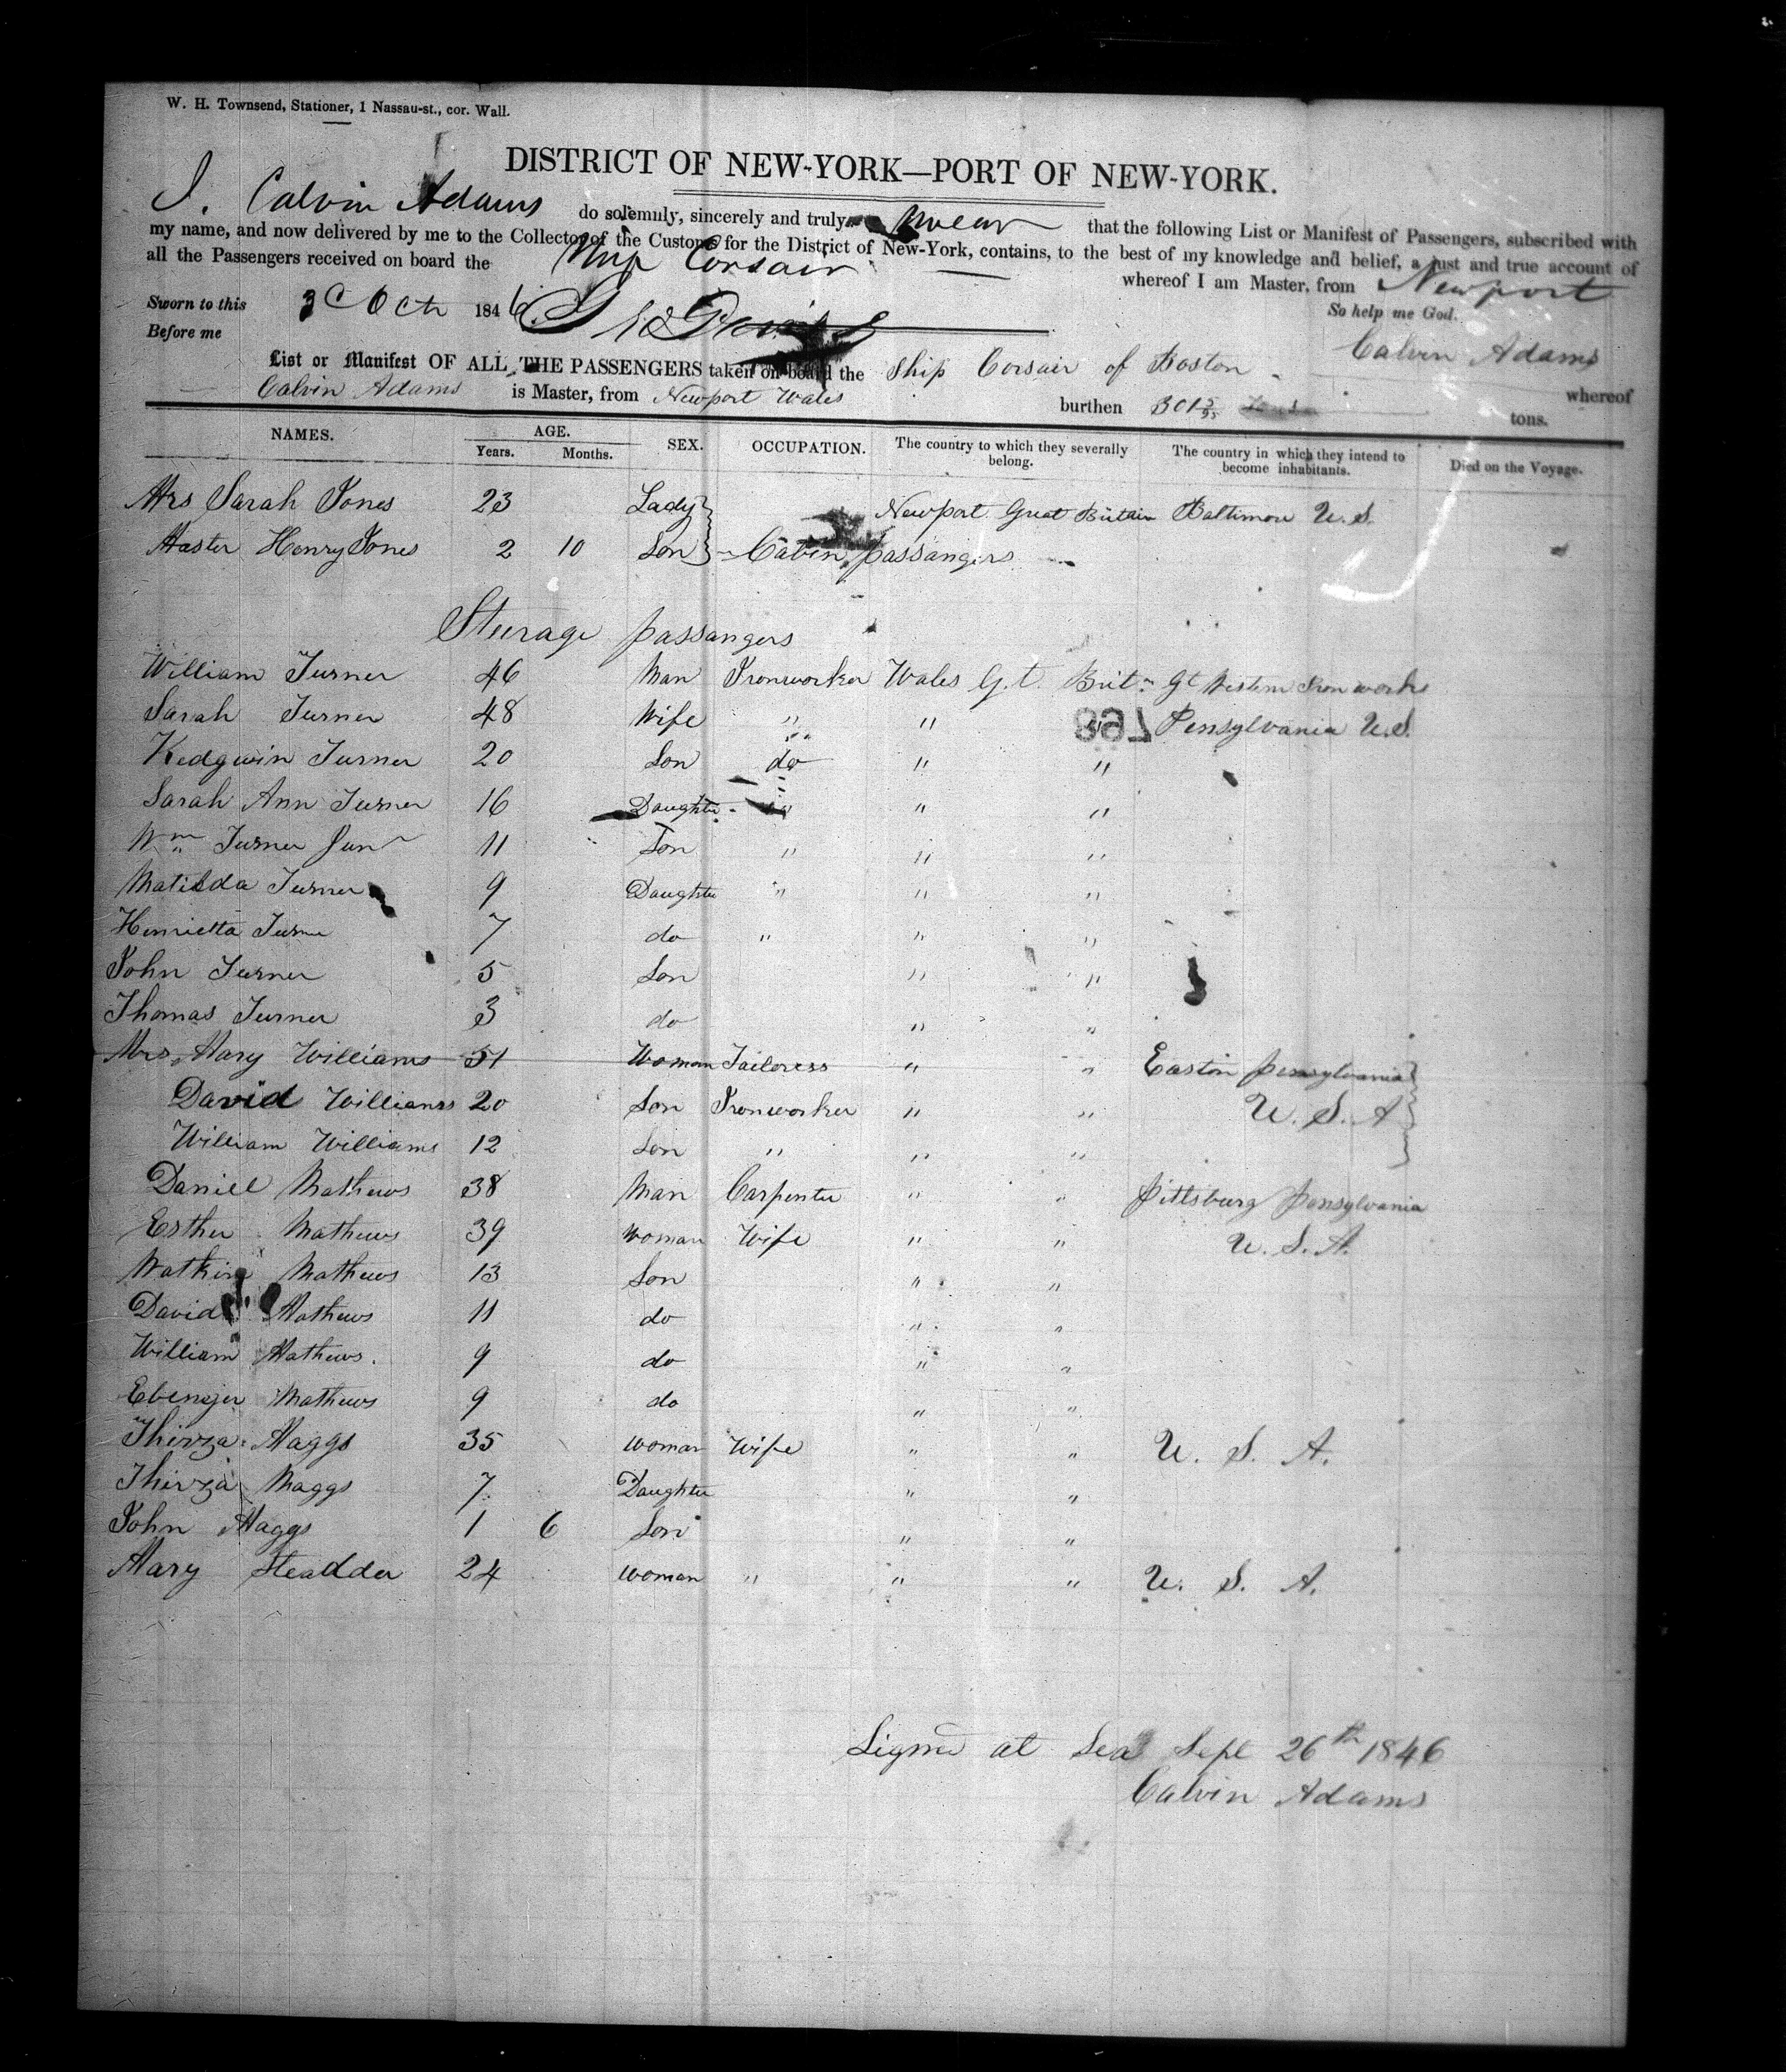 W. H. Townsend, Stationer, 1 Nassau-st., cor. Wall.
DISTRICT OF NEW-YORK—PORT OF NEW-YORK.
I, Calvin Adams do solemnly, sincerely and truly swear that the following List or Manifest of Passengers, subscribed with
my name, and now delivered by me to the Collector of the Customs for the District of New-York, contains, to the best of my knowledge and belief, a just and true account of
all the Passengers received on board the Ship Corsair whereof I am Master, from Newport
Sworn to this 3 Oct 1846 So help me God.
Before me Calvin Adams
List or Manifest OF ALL THE PASSENGERS taken on board the Ship Corsair of Boston whereof
Calvin Adams is Master, from Newport Wales burthen 301 5/95 tons.
NAMES. AGE. Years. Months. SEX. OCCUPATION. The country to which they severally belong. The country in which they intend to become inhabitants. Died on the Voyage.
Mrs Sarah Jones 23 Lady Newport Great Britain Baltimore U.S.
Master Henry Jones 2 10 Son Cabin passangers
Steerage passangers
William Turner 46 Man Ironworker Wales Gt. Britn Gt Western Iron works
Sarah Turner 48 Wife " " " 768 Pensylvania U.S.
Kedgwin Turner 20 Son do " "
Sarah Ann Turner 16 Daughter " " "
Wm Turner Junr 11 Son " " "
Matilda Turner 9 Daughter " " "
Henrietta Turner 7 do " " "
John Turner 5 Son " "
Thomas Turner 3 do " "
Mrs Mary Williams 51 Woman Tailoress " " Easton pensylvania
David Williams 20 Son Ironworker " " U.S.A
William Williams 12 Son " " "
Daniel Mathews 38 Man Carpenter " " pittsburg pensylvania
Esther Mathews 39 Woman Wife " " U.S.A.
Watkin Mathews 13 Son " "
David Mathews 11 do " "
William Mathews 9 do " "
Ebenezer Mathews 9 do " "
Thirza Maggs 35 Woman Wife " " U. S. A.
Thirza Maggs 7 Daughter " "
John Maggs 1 6 Son " "
Mary Steadder 24 Woman " " " U. S. A.
Signed at Sea Sept 26th 1846
Calvin Adams